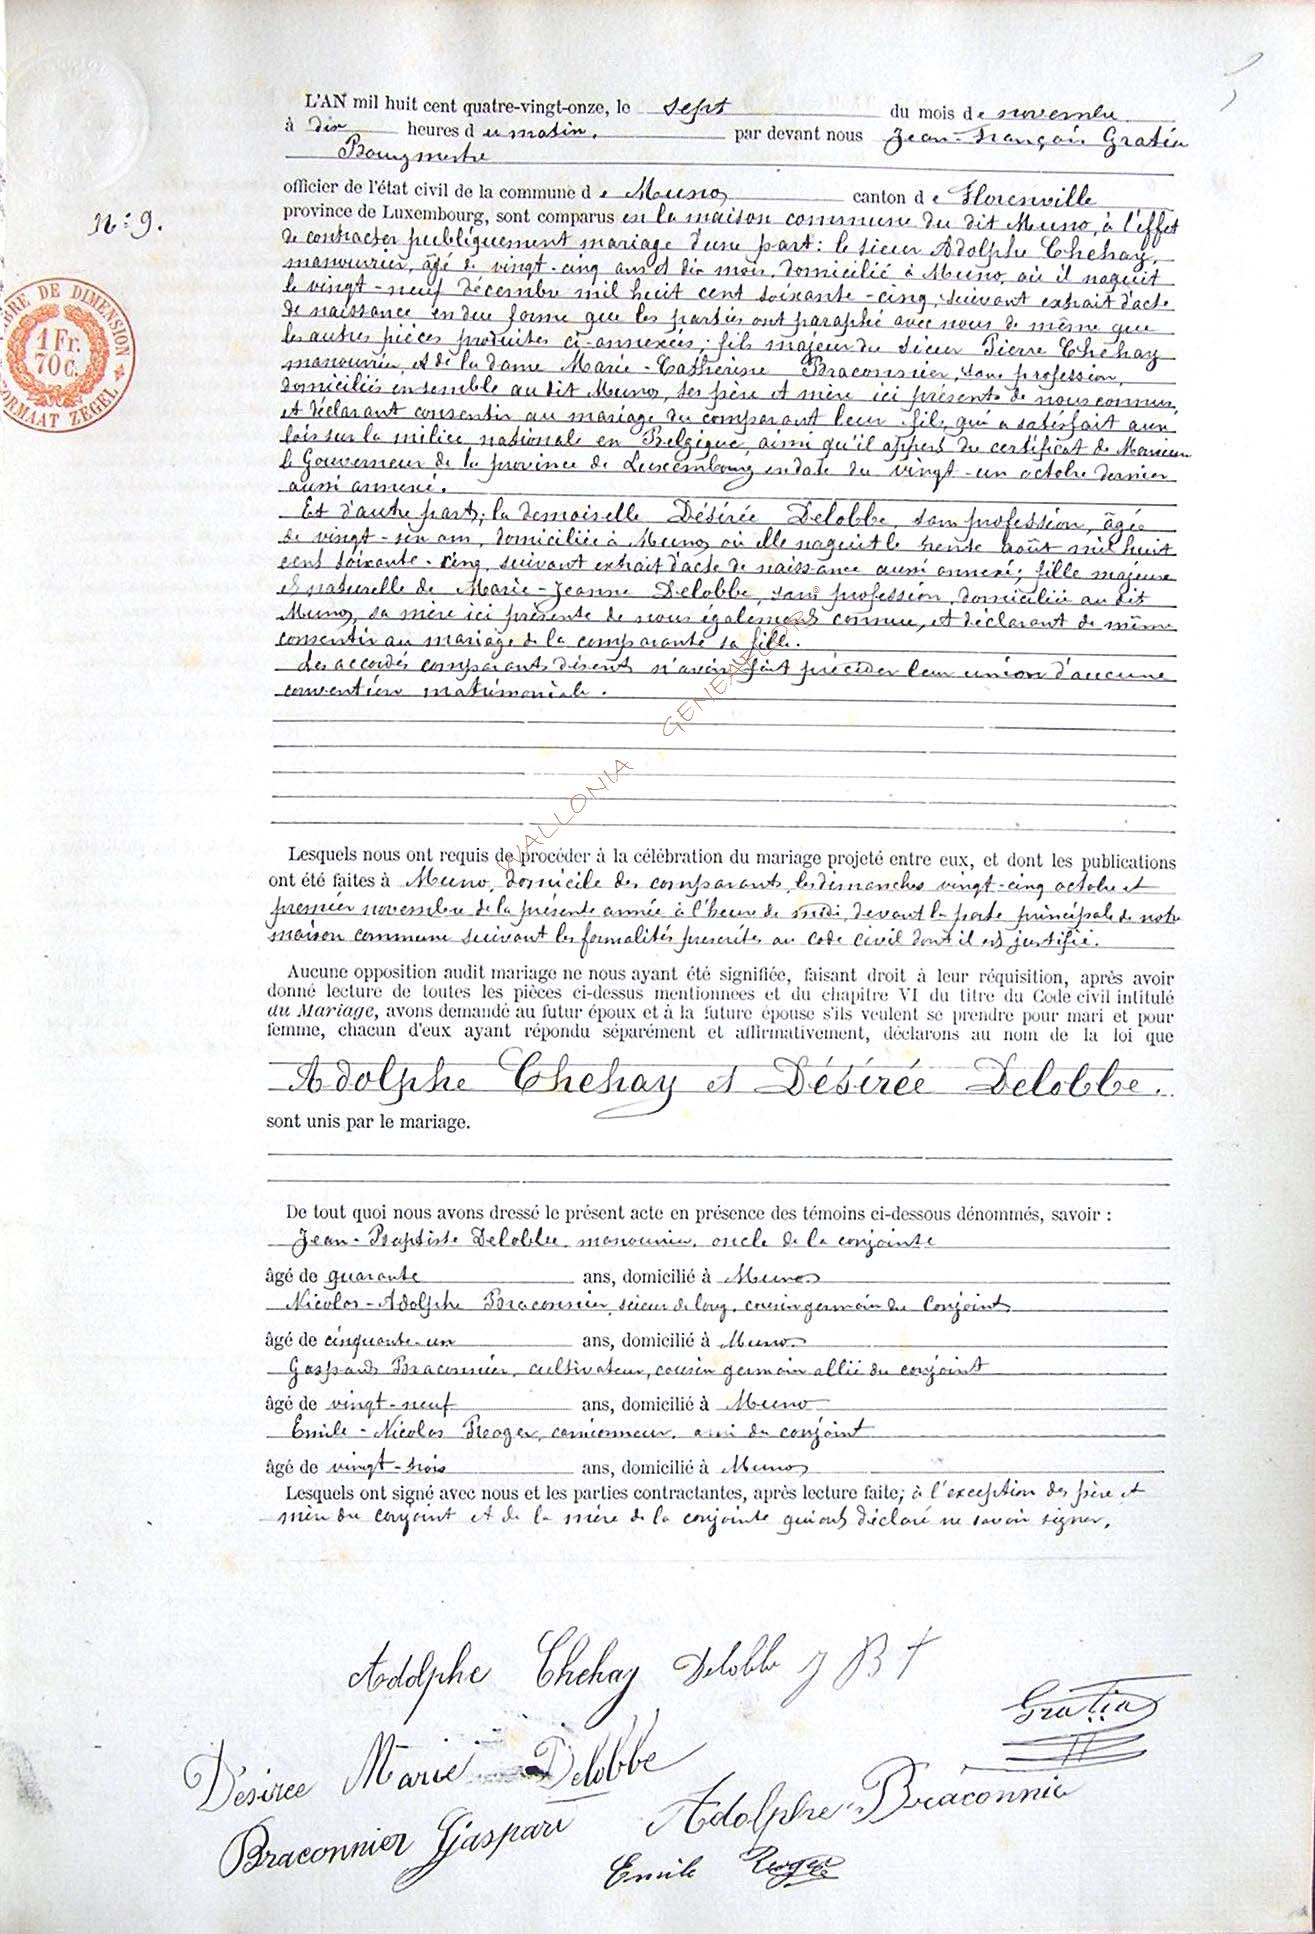 L'AN mil huit cent quatre-vingt-onze, le sept du mois de novembre
à dix heures du matin, par devant nous Jean-François Gratia
Bourgmestre
officier de l'état civil de la commune de Muno canton de Florenville
N° 9.
province de Luxembourg, sont comparus en la maison commune du dit Muno, à l'effet
de contracter publiquement mariage d'une part: le sieur Adolphe Chehay,
manouvrier, âgé de vingt-cinq ans et dix mois, domicilié à Muno, où il naquit
le vingt-neuf décembre mil huit cent soixante-cinq, suivant extrait d'acte
de naissance en due forme que les parties ont paraphé avec nous de même que
les autres pièces produites ci-annexées; fils majeur du sieur Pierre Chehay
manouvrier, et de la dame Marie-Catherine Braconnier, sans profession,
domiciliés ensemble au dit Muno, ses père et mère ici présents de nous connus,
et déclarant consentir au mariage du comparant leur fils, qui a satisfait aux
lois sur la milice nationale en Belgique, ainsi qu'il appert du certificat de Monsieur
le Gouverneur de la province de Luxembourg en date du vingt-un octobre dernier
aussi annexé.
Et d'autre part; la demoiselle Désirée Delobbe, sans profession, âgée
de vingt-six ans, domiciliée à Muno, où elle naquit le trente août mil huit
cent soixante-cinq, suivant extrait d'acte de naissance aussi annexé; fille majeure
et naturelle de Marie-Jeanne Delobbe, sans profession, domiciliée au dit
Muno, sa mère ici présente de nous également connue, et déclarant de même
consentir au mariage de la comparante sa fille.
Les accordés comparants disent n'avoir fait précéder leur union d'aucune
convention matrimoniale.
TIMBRE DE DIMENSION
1 Fr.
70 c.
FORMAAT ZEGEL
WALLONIA GENEALOORS ©
Lesquels nous ont requis de procéder à la célébration du mariage projeté entre eux, et dont les publications
ont été faites à Muno, domicile des comparants, les dimanches vingt-cinq octobre et
premier novembre de la présente année à l'heure de midi, devant la porte principale de notre
maison commune suivant les formalités prescrites au code civil dont il est justifié.
Aucune opposition audit mariage ne nous ayant été signifiée, faisant droit à leur réquisition, après avoir
donné lecture de toutes les pièces ci-dessus mentionnées et du chapitre VI du titre du Code civil intitulé
du Mariage, avons demandé au futur époux et à la future épouse s'ils veulent se prendre pour mari et pour
femme, chacun d'eux ayant répondu séparément et affirmativement, déclarons au nom de la loi que
Adolphe Chehay et Désirée Delobbe.
sont unis par le mariage.
De tout quoi nous avons dressé le présent acte en présence des témoins ci-dessous dénommés, savoir :
Jean-Baptiste Delobbe, manouvrier, oncle de la conjointe
âgé de quarante ans, domicilié à Muno
Nicolas-Adolphe Braconnier, scieur de long, cousin germain du conjoint
âgé de cinquante-un ans, domicilié à Muno
Gaspard Braconnier, cultivateur, cousin germain allié du conjoint
âgé de vingt-neuf ans, domicilié à Muno
Emile-Nicolas camionneur, ami du conjoint
âgé de vingt-trois ans, domicilié à Muno
Lesquels ont signé avec nous et les parties contractantes, après lecture faite; à l'exception des père et
mère du conjoint et de la mère de la conjointe qui ont déclaré ne savoir signer.
Adolphe Chehay Delobbe J B
Gratia
Désirée Marie Delobbe
Adolphe Braconnie
Braconnier Gaspard
Emile